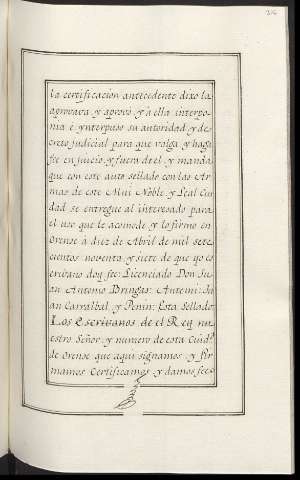 la certificacion antecedente dixo la
aprovava y aprovó y á ella interpo-
nia é ynterpuso su autoridad y de-
creto judicial para que valga y haga
fee en juicio y fuera de el, y manda
que con este auto sellado con las Ar-
mas de este Mui Noble y Leal Ciu
dad se entregue al interesado para
el uso que le acomode y lo firmo en
Orense á diez de Abril de mil sete
cientos noventa y siete de que yo es
cribano doy fee: Licenciado Don Ju-
an Antonio Bringas: Antemi: Ju
an Carralbal y Penin: Esta Sellado
Los Escribanos de el Rey nu
estro Señor y numero de esta Ciudd.
de Orense que aqui signamos y fir
mamos Certificamos y damos fee